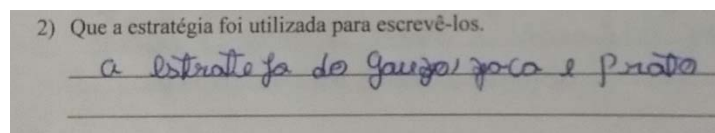 2) Que a estratégia foi utilizada para escrevê-los.
a estrateja do gaufo, faca e prato